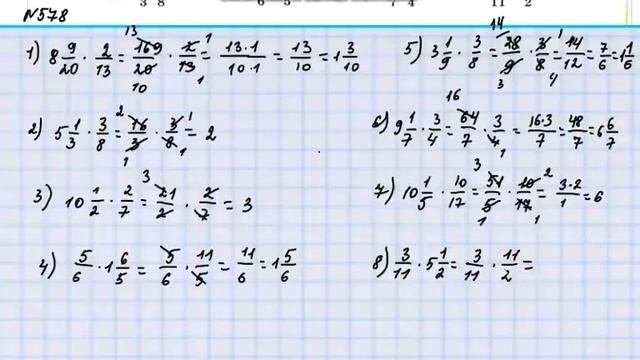 3 8 6 5 7 4 11 2
№578
1) 8 9/20 · 2/13 = 169/20 · 2/13 = 13·1/10·1 = 13/10 = 1 3/10
2) 5 1/3 · 3/8 = 16/3 · 3/8 = 2
3) 10 1/2 · 2/7 = 21/2 · 2/7 = 3
4) 5/6 · 1 6/5 = 5/6 · 11/5 = 11/6 = 1 5/6
5) 3 1/9 · 3/8 = 28/9 · 3/8 = 14/12 = 7/6 = 1 1/6
6) 9 1/7 · 3/4 = 64/7 · 3/4 = 16·3/7 = 48/7 = 6 6/7
7) 10 1/5 · 10/17 = 51/5 · 10/17 = 3·2/1 = 6
8) 3/11 · 5 1/2 = 3/11 · 11/2 =